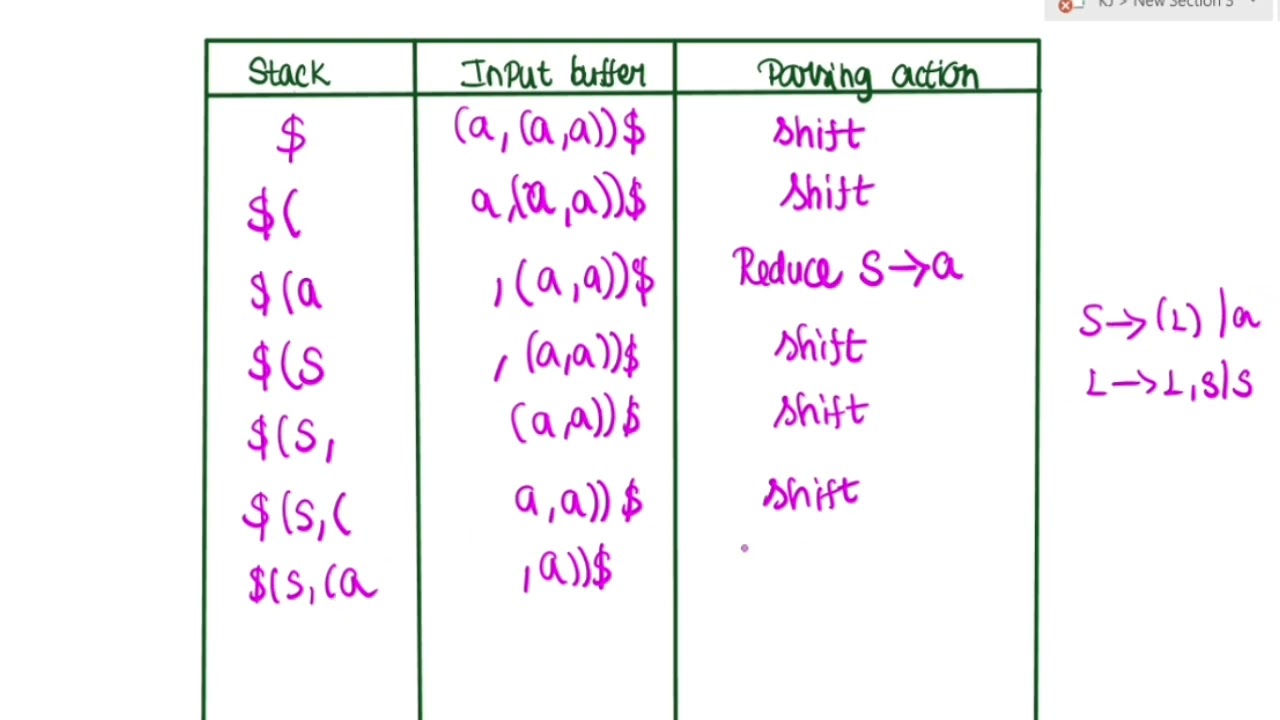 KJ > New Section 3
Stack Input buffer Parsing action
$ (a, (a,a))$ shift
$( a,(a,a))$ shift
$(a ,(a,a))$ Reduce S→a
$(S , (a,a))$ shift
$(S, (a,a))$ shift
$(S,( a,a))$ shift
$(S,(a ,a))$
S→(L) |a
L→L,S|S